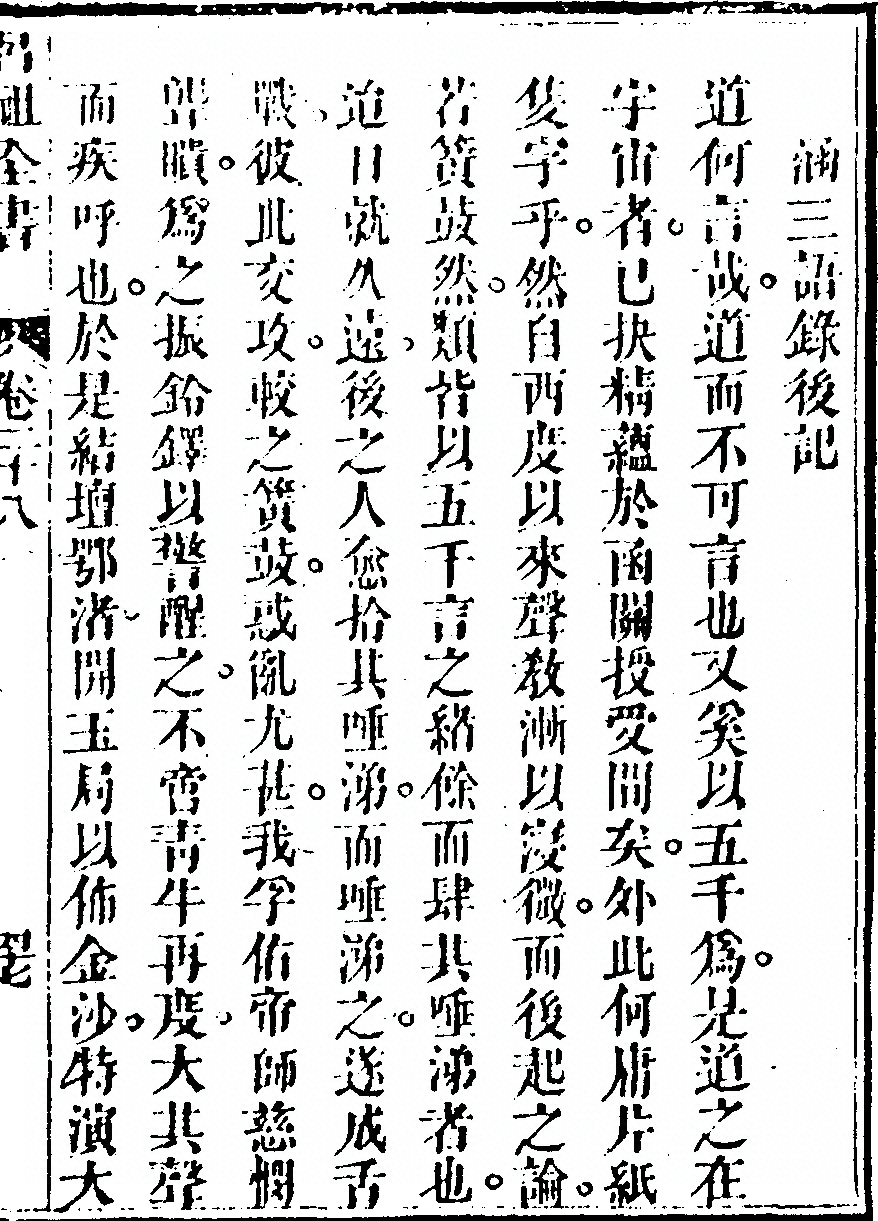 涵三語錄後記
道何言哉。道而不可言也又奚以五千爲。是道之在
宇宙者。已抉精蘊於函關授受間矣。外此何庸片紙
隻字乎。然自西度以來聲教漸以寖微。而後起之論。
若簧鼓然。類皆以五千言之緒餘而肆其唾涕者也。
迨日就久遠。後之人愈拾其唾涕。而唾涕之。遂成舌
戰。彼此交攻。較之簧鼓。惑亂尤甚。我孚佑帝師慈憫
聾瞶。爲之振鈴鐸以警醒之。不啻青牛再度。大其聲
而疾呼也。於是結壇鄂渚、開玉局以佈金沙。特演大
呂祖全書 卷二十八